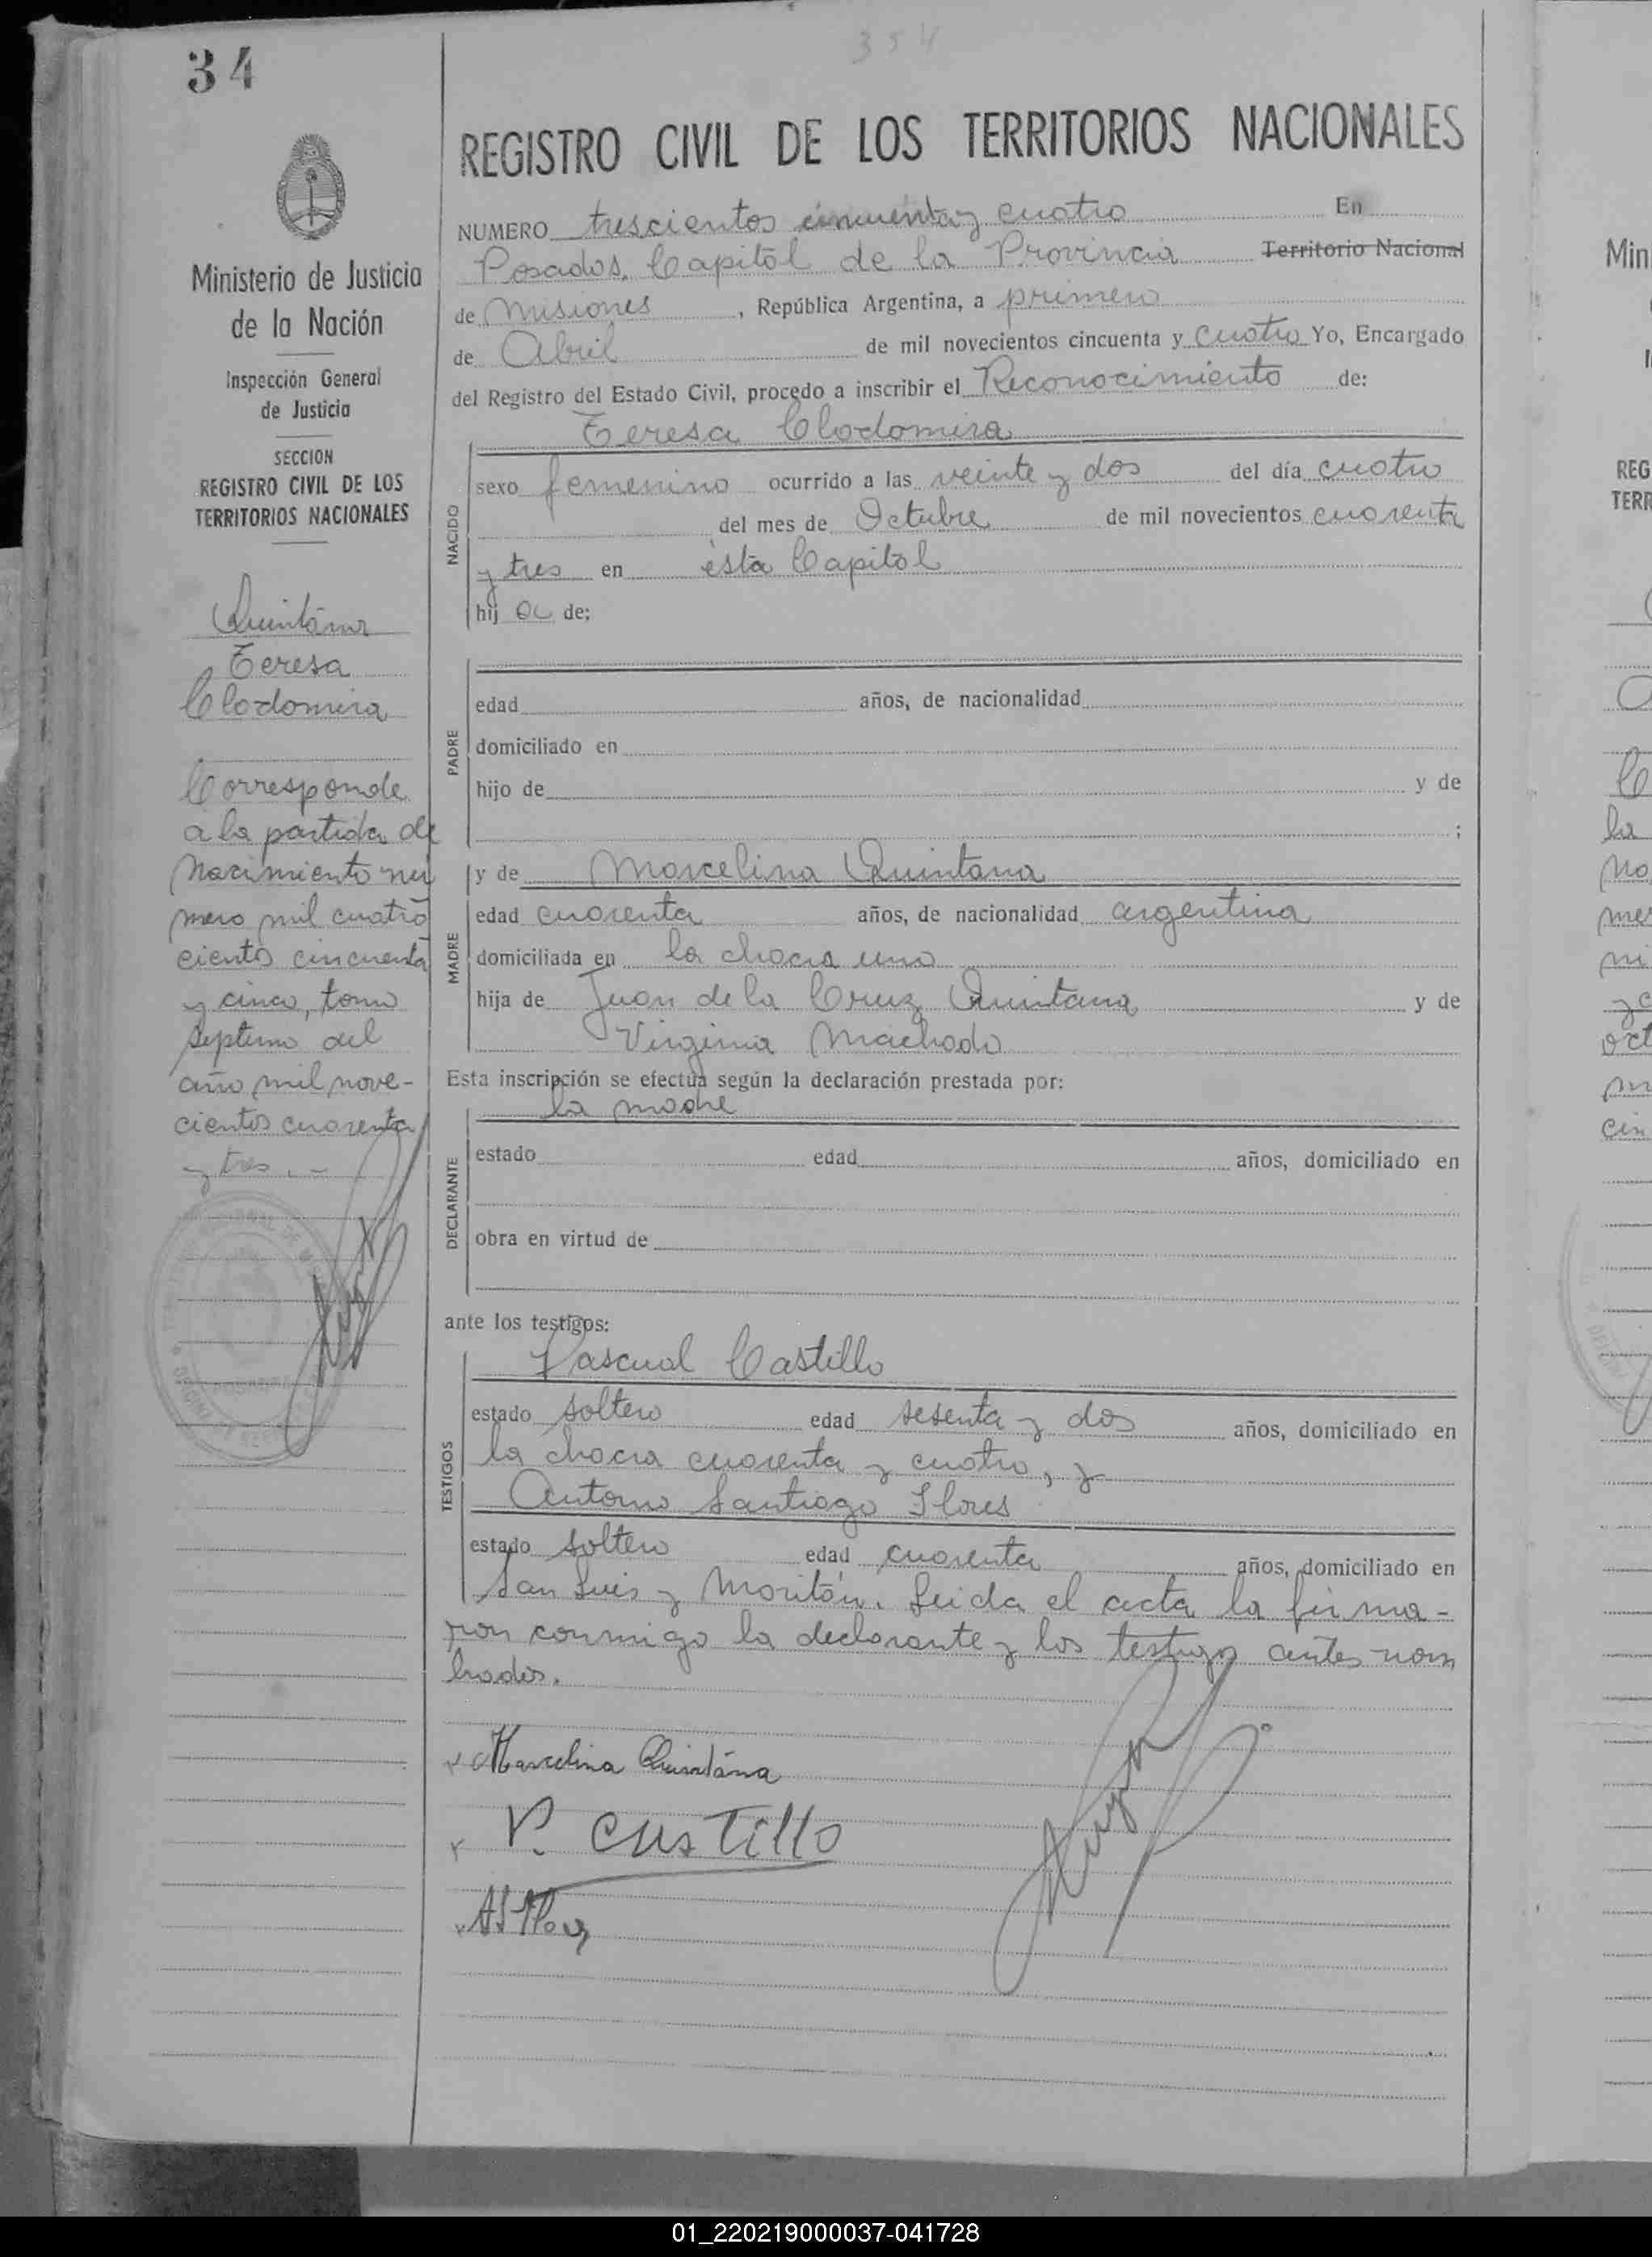 34
354
REGISTRO CIVIL DE LOS TERRITORIOS NACIONALES
Ministerio de Justicia
de la Nación
Inspección General
de Justicia
SECCION
REGISTRO CIVIL DE LOS
TERRITORIOS NACIONALES
Quintána
Teresa
Clodomira
Corresponde
a la partida de
Nacimiento nú
mero mil cuatro
cientos cincuenta
y cinco, tomo
septimo del
año mil nove-
cientos cuarenta
y tres.-
NUMERO trescientos cincuenta y cuatro En
Posadas, Capital de la Provincia Territorio Nacional
de Misiones, República Argentina, a primero
de Abril de mil novecientos cincuenta y cuatro Yo, Encargado
del Registro del Estado Civil, procedo a inscribir el Reconocimiento de:
NACIDO
Teresa Clodomira
sexo femenino ocurrido a las veinte y dos del día cuatro
del mes de Octubre de mil novecientos cuarenta
y tres en ésta Capital
hij a de:
PADRE
edad años, de nacionalidad
domiciliado en
hijo de y de
;
MADRE
y de Marcelina Quintana
edad cuarenta años, de nacionalidad argentina
domiciliada en la chacra uno
hija de Juan de la Cruz Quintana y de
Virginia Machado
Esta inscripción se efectúa según la declaración prestada por:
DECLARANTE
la madre
estado edad años, domiciliado en
obra en virtud de
ante los testigos:
TESTIGOS
Pascual Castillo
estado soltero edad sesenta y dos años, domiciliado en
la chacra cuarenta y cuatro, y
Antonio Santiago Flores
estado soltero edad cuarenta años, domiciliado en
San Luis y Moritán. Leida el acta la firma-
ron conmigo la declarante y los testigo antes nom
brados.
Marcelina Quintána
P. Castillo
AS Flores
Min
REG
TERR
01_220219000037-041728